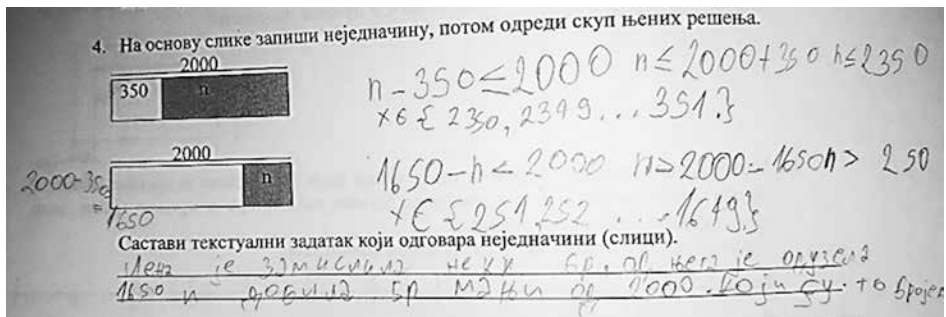 4. На основу слике запиши неједначину, потом одреди скуп њених решења.
2000
350 n
n - 350 ≤ 2000 n ≤ 2000 + 350 n ≤ 2350
x є { 2350, 2349 ... 351.}
2000
n
2000-350
= 1650
1650 - n < 2000 n > 2000 - 1650 n > 250
x є { 251, 252 ... 1649.}
Састави текстуални задатак који одговара неједначини (слици).
је замислила неки бр. од њега је одузела
1650 и добила бр мањи од 2000. Који су то бројеви